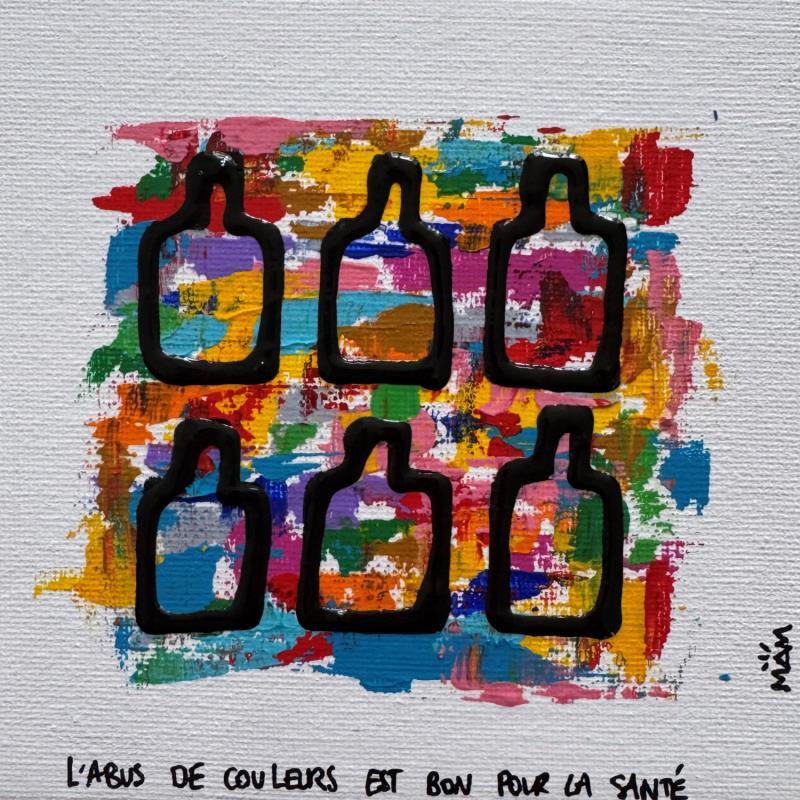 MAM
L'ABUS DE COULEURS EST BON POUR LA SANTÉ